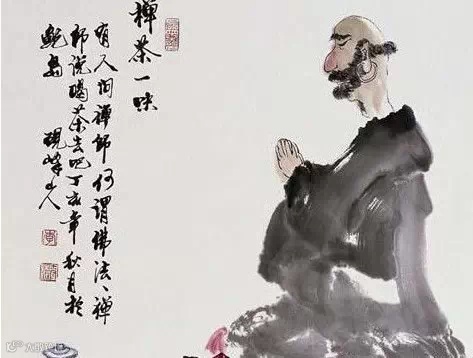 禪茶一味
有人问禪師何谓佛法、禪
師说喝茶去吧丁亥年秋月於
鲍岛 砚峰山人